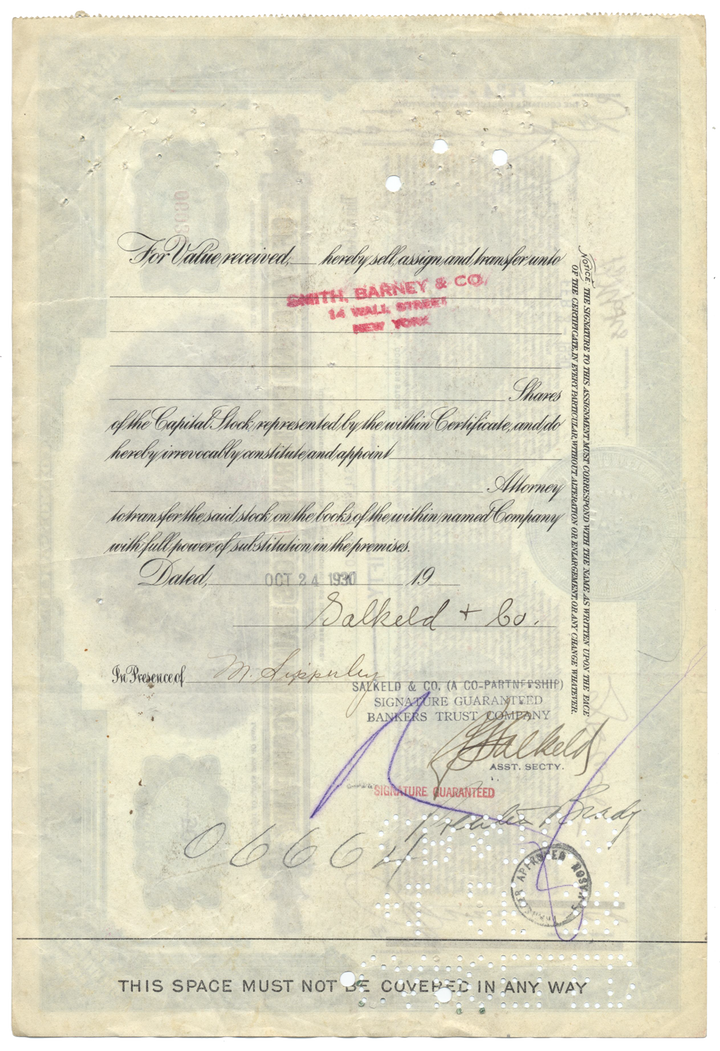 For Value received, hereby sell, assign and transfer unto
SMITH, BARNEY & CO.
14 WALL STREET
NEW YORK
Shares
of the Capital Stock represented by the within Certificate, and do
hereby irrevocably constitute and appoint
Attorney
to transfer the said stock on the books of the within named Company
with full power of substitution in the premises.
Dated, OCT 24 1930 19
Salkeld & Co.
In Presence of M. Sipperley
SALKELD & CO. (A CO-PARTNERSHIP)
SIGNATURE GUARANTEED
BANKERS TRUST COMPANY
Salkeld
ASST. SECTY.
SIGNATURE GUARANTEED
Brady
06664
THIS SPACE MUST NOT BE COVERED IN ANY WAY
NOTICE. THE SIGNATURE TO THIS ASSIGNMENT MUST CORRESPOND WITH THE NAME AS WRITTEN UPON THE FACE
OF THE CERTIFICATE, IN EVERY PARTICULAR, WITHOUT ALTERATION OR ENLARGEMENT, OR ANY CHANGE WHATEVER.